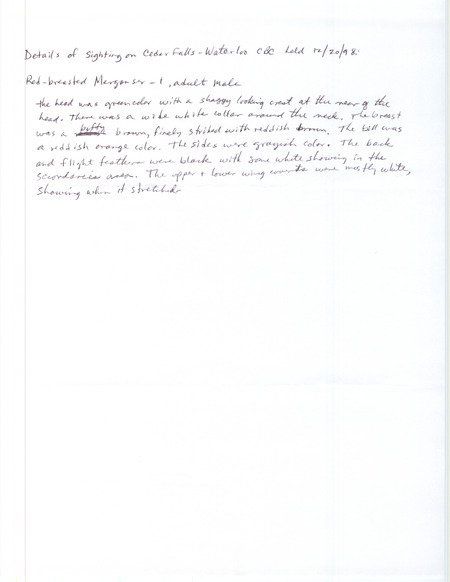 Details of Sighting on Cedar Falls - Waterloo CBC held 12/20/98:
Red-breasted Merganser - 1, adult male
the head was green color with a shaggy looking crest at the rear of the
head. There was a wide white collar around the neck. The breast
was a buffy brown, finely striked with reddish brown. The bill was
a reddish orange color. The sides were grayish color. The back
and flight feathers were blank with some white showing in the
secondaries area. The upper + lower wing coverts were mostly white,
showing when it stretched.